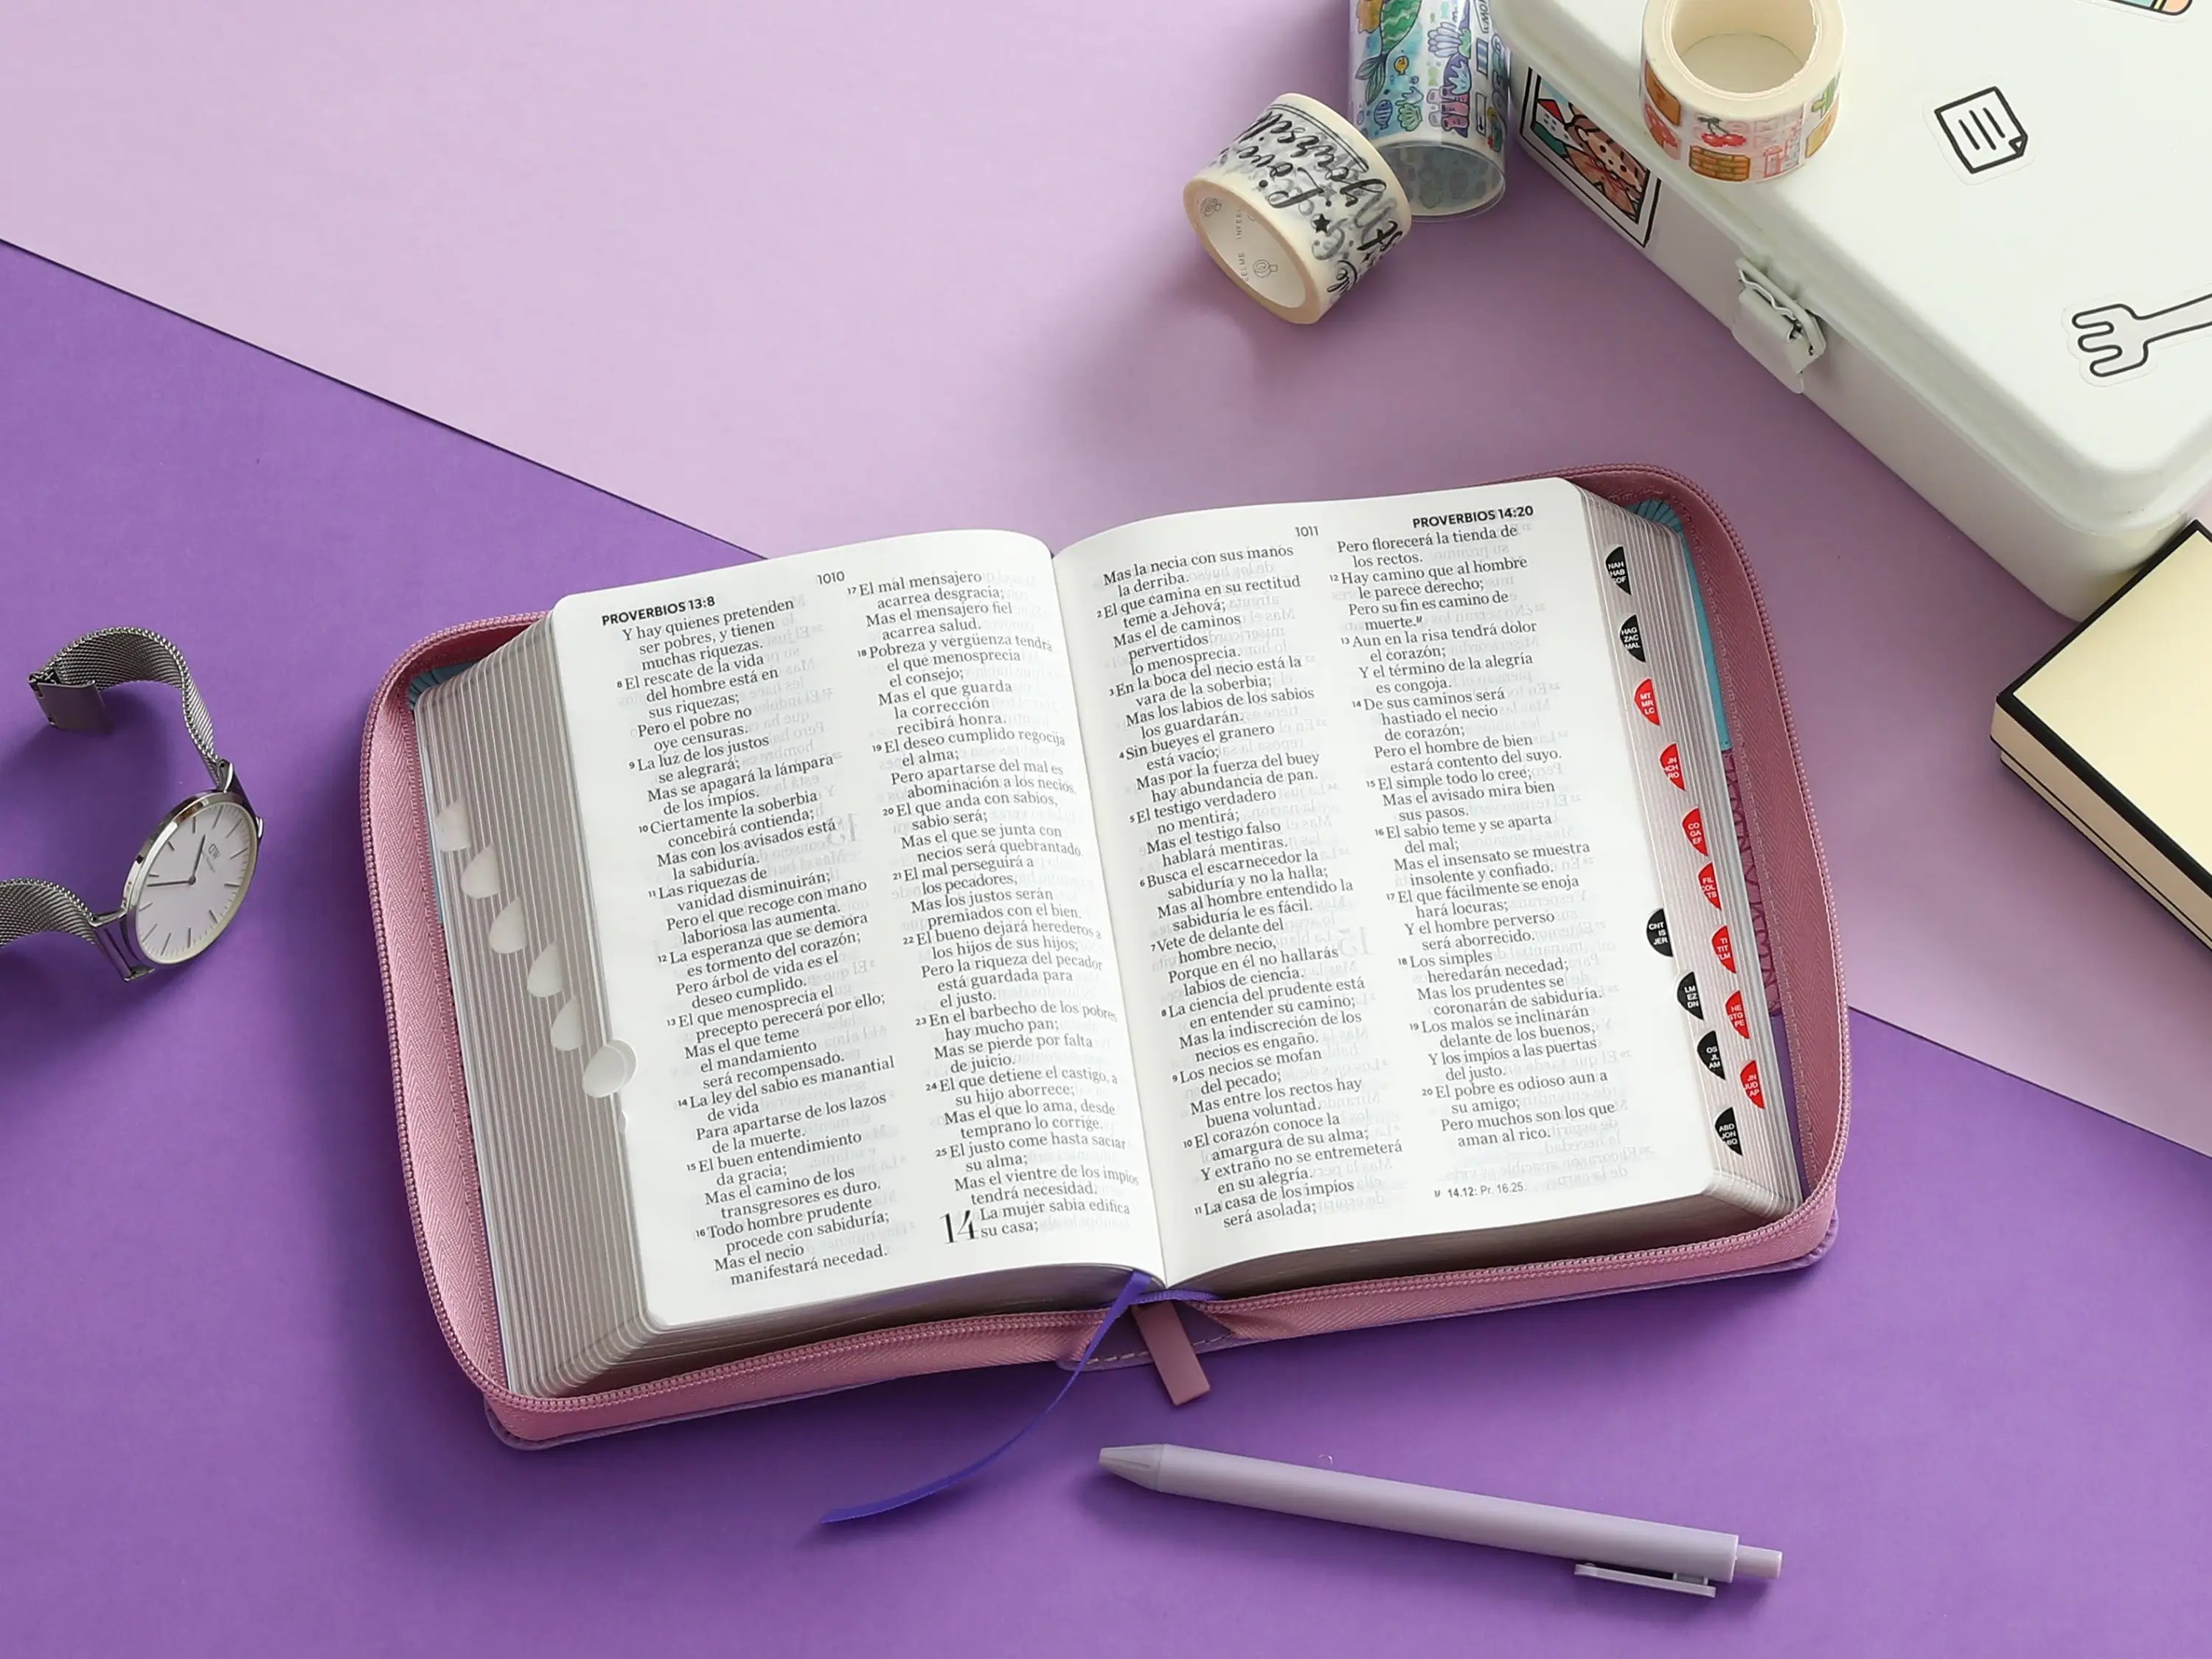 PROVERBIOS 13:8
1010
Y hay quienes pretenden
ser pobres, y tienen
muchas riquezas.
8 El rescate de la vida
del hombre está en
sus riquezas;
Pero el pobre no
oye censuras.
9 La luz de los justos
se alegrará;
Mas se apagará la lámpara
de los impíos.
10 Ciertamente la soberbia
concebirá contienda;
Mas con los avisados está
la sabiduría.
11 Las riquezas de
vanidad disminuirán;
Pero el que recoge con mano
laboriosa las aumenta.
12 La esperanza que se demora
es tormento del corazón;
Pero árbol de vida es el
deseo cumplido.
13 El que menosprecia el
precepto perecerá por ello;
Mas el que teme
el mandamiento
será recompensado.
14 La ley del sabio es manantial
de vida
Para apartarse de los lazos
de la muerte.
15 El buen entendimiento
da gracia;
Mas el camino de los
transgresores es duro.
16 Todo hombre prudente
procede con sabiduría;
Mas el necio
manifestará necedad.
17 El mal mensajero
acarrea desgracia;
Mas el mensajero fiel
acarrea salud.
18 Pobreza y vergüenza tendrá
el que menosprecia
el consejo;
Mas el que guarda
la corrección
recibirá honra.
19 El deseo cumplido regocija
el alma;
Pero apartarse del mal es
abominación a los necios.
20 El que anda con sabios,
sabio será;
Mas el que se junta con
necios será quebrantado.
21 El mal perseguirá a
los pecadores,
Mas los justos serán
premiados con el bien.
22 El bueno dejará herederos a
los hijos de sus hijos;
Pero la riqueza del pecador
está guardada para
el justo.
23 En el barbecho de los pobres
hay mucho pan;
Mas se pierde por falta
de juicio.
24 El que detiene el castigo, a
su hijo aborrece;
Mas el que lo ama, desde
temprano lo corrige.
25 El justo come hasta saciar
su alma;
Mas el vientre de los impíos
tendrá necesidad.
14 La mujer sabia edifica
su casa;
1011
PROVERBIOS 14:20
Mas la necia con sus manos
la derriba.
2 El que camina en su rectitud
teme a Jehová;
Mas el de caminos
pervertidos
lo menosprecia.
3 En la boca del necio está la
vara de la soberbia;
Mas los labios de los sabios
los guardarán.
4 Sin bueyes el granero
está vacío;
Mas por la fuerza del buey
hay abundancia de pan.
5 El testigo verdadero
no mentirá;
Mas el testigo falso
hablará mentiras.
6 Busca el escarnecedor la
sabiduría y no la halla;
Mas al hombre entendido la
sabiduría le es fácil.
7 Vete de delante del
hombre necio,
Porque en él no hallarás
labios de ciencia.
8 La ciencia del prudente está
en entender su camino;
Mas la indiscreción de los
necios es engaño.
9 Los necios se mofan
del pecado;
Mas entre los rectos hay
buena voluntad.
10 El corazón conoce la
amargura de su alma;
Y extraño no se entremeterá
en su alegría.
11 La casa de los impíos
será asolada;
Pero florecerá la tienda de
los rectos.
12 Hay camino que al hombre
le parece derecho;
Pero su fin es camino de
muerte.
13 Aun en la risa tendrá dolor
el corazón;
Y el término de la alegría
es congoja.
14 De sus caminos será
hastiado el necio
de corazón;
Pero el hombre de bien
estará contento del suyo.
15 El simple todo lo cree;
Mas el avisado mira bien
sus pasos.
16 El sabio teme y se aparta
del mal;
Mas el insensato se muestra
insolente y confiado.
17 El que fácilmente se enoja
hará locuras;
Y el hombre perverso
será aborrecido.
18 Los simples
heredarán necedad;
Mas los prudentes se
coronarán de sabiduría.
19 Los malos se inclinarán
delante de los buenos,
Y los impíos a las puertas
del justo.
20 El pobre es odioso aun a
su amigo;
Pero muchos son los que
aman al rico.
14.12: Pr. 16.25.
NAH
HAB
SOF
HAG
ZAC
MAL
MT
MR
LC
JN
HCH
RO
CO
GA
EF
FIL
COL
TS
TI
TIT
FLM
HE
STG
PE
JN
JUD
AP
CNT
IS
JER
LM
EZ
DN
OS
JL
AM
ABD
JON
MIQ
Love
Yourself
DW